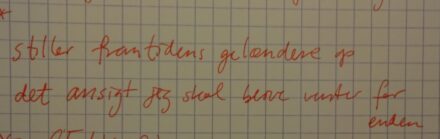 stiller fremtidens gelændere op
det ansigt jeg skal bære venter for
enden